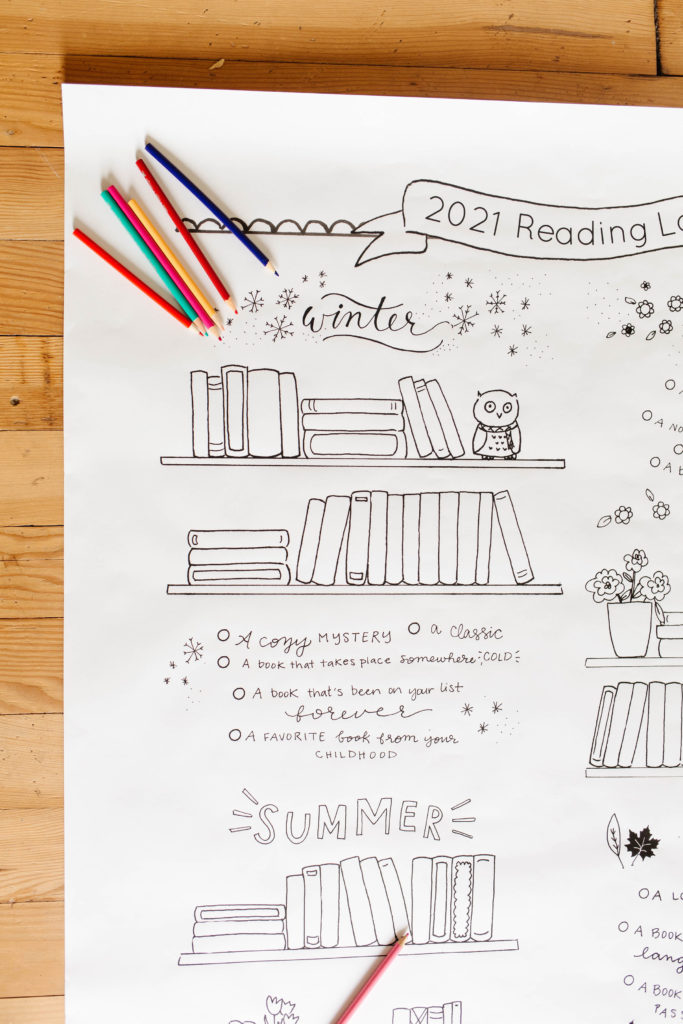 2021 Reading
winter
A cozy MYSTERY
a classic
A book that takes place somewhere COLD
A book that's been on your list
forever
A FAVORITE book from your
CHILDHOOD
SUMMER
A
A BOOK
A BOOK